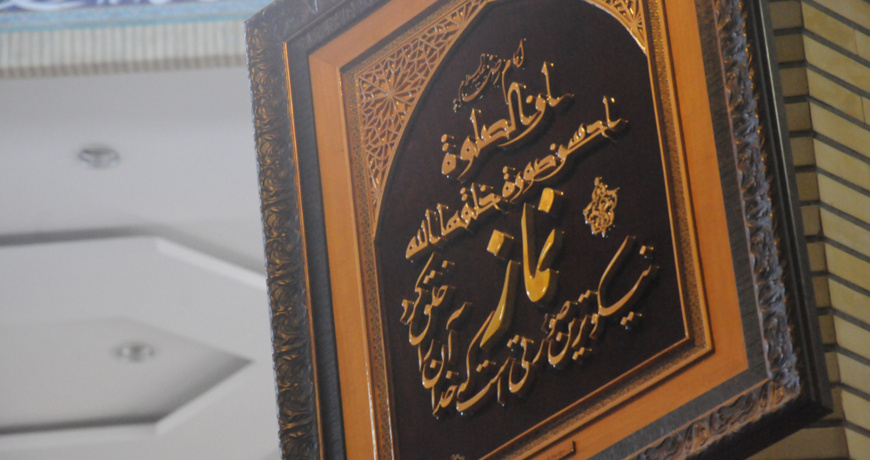 امام
الصلوة
صورة خلقها الله
نماز
نیکوترین صورتی است که خدا آن را خلق کرد